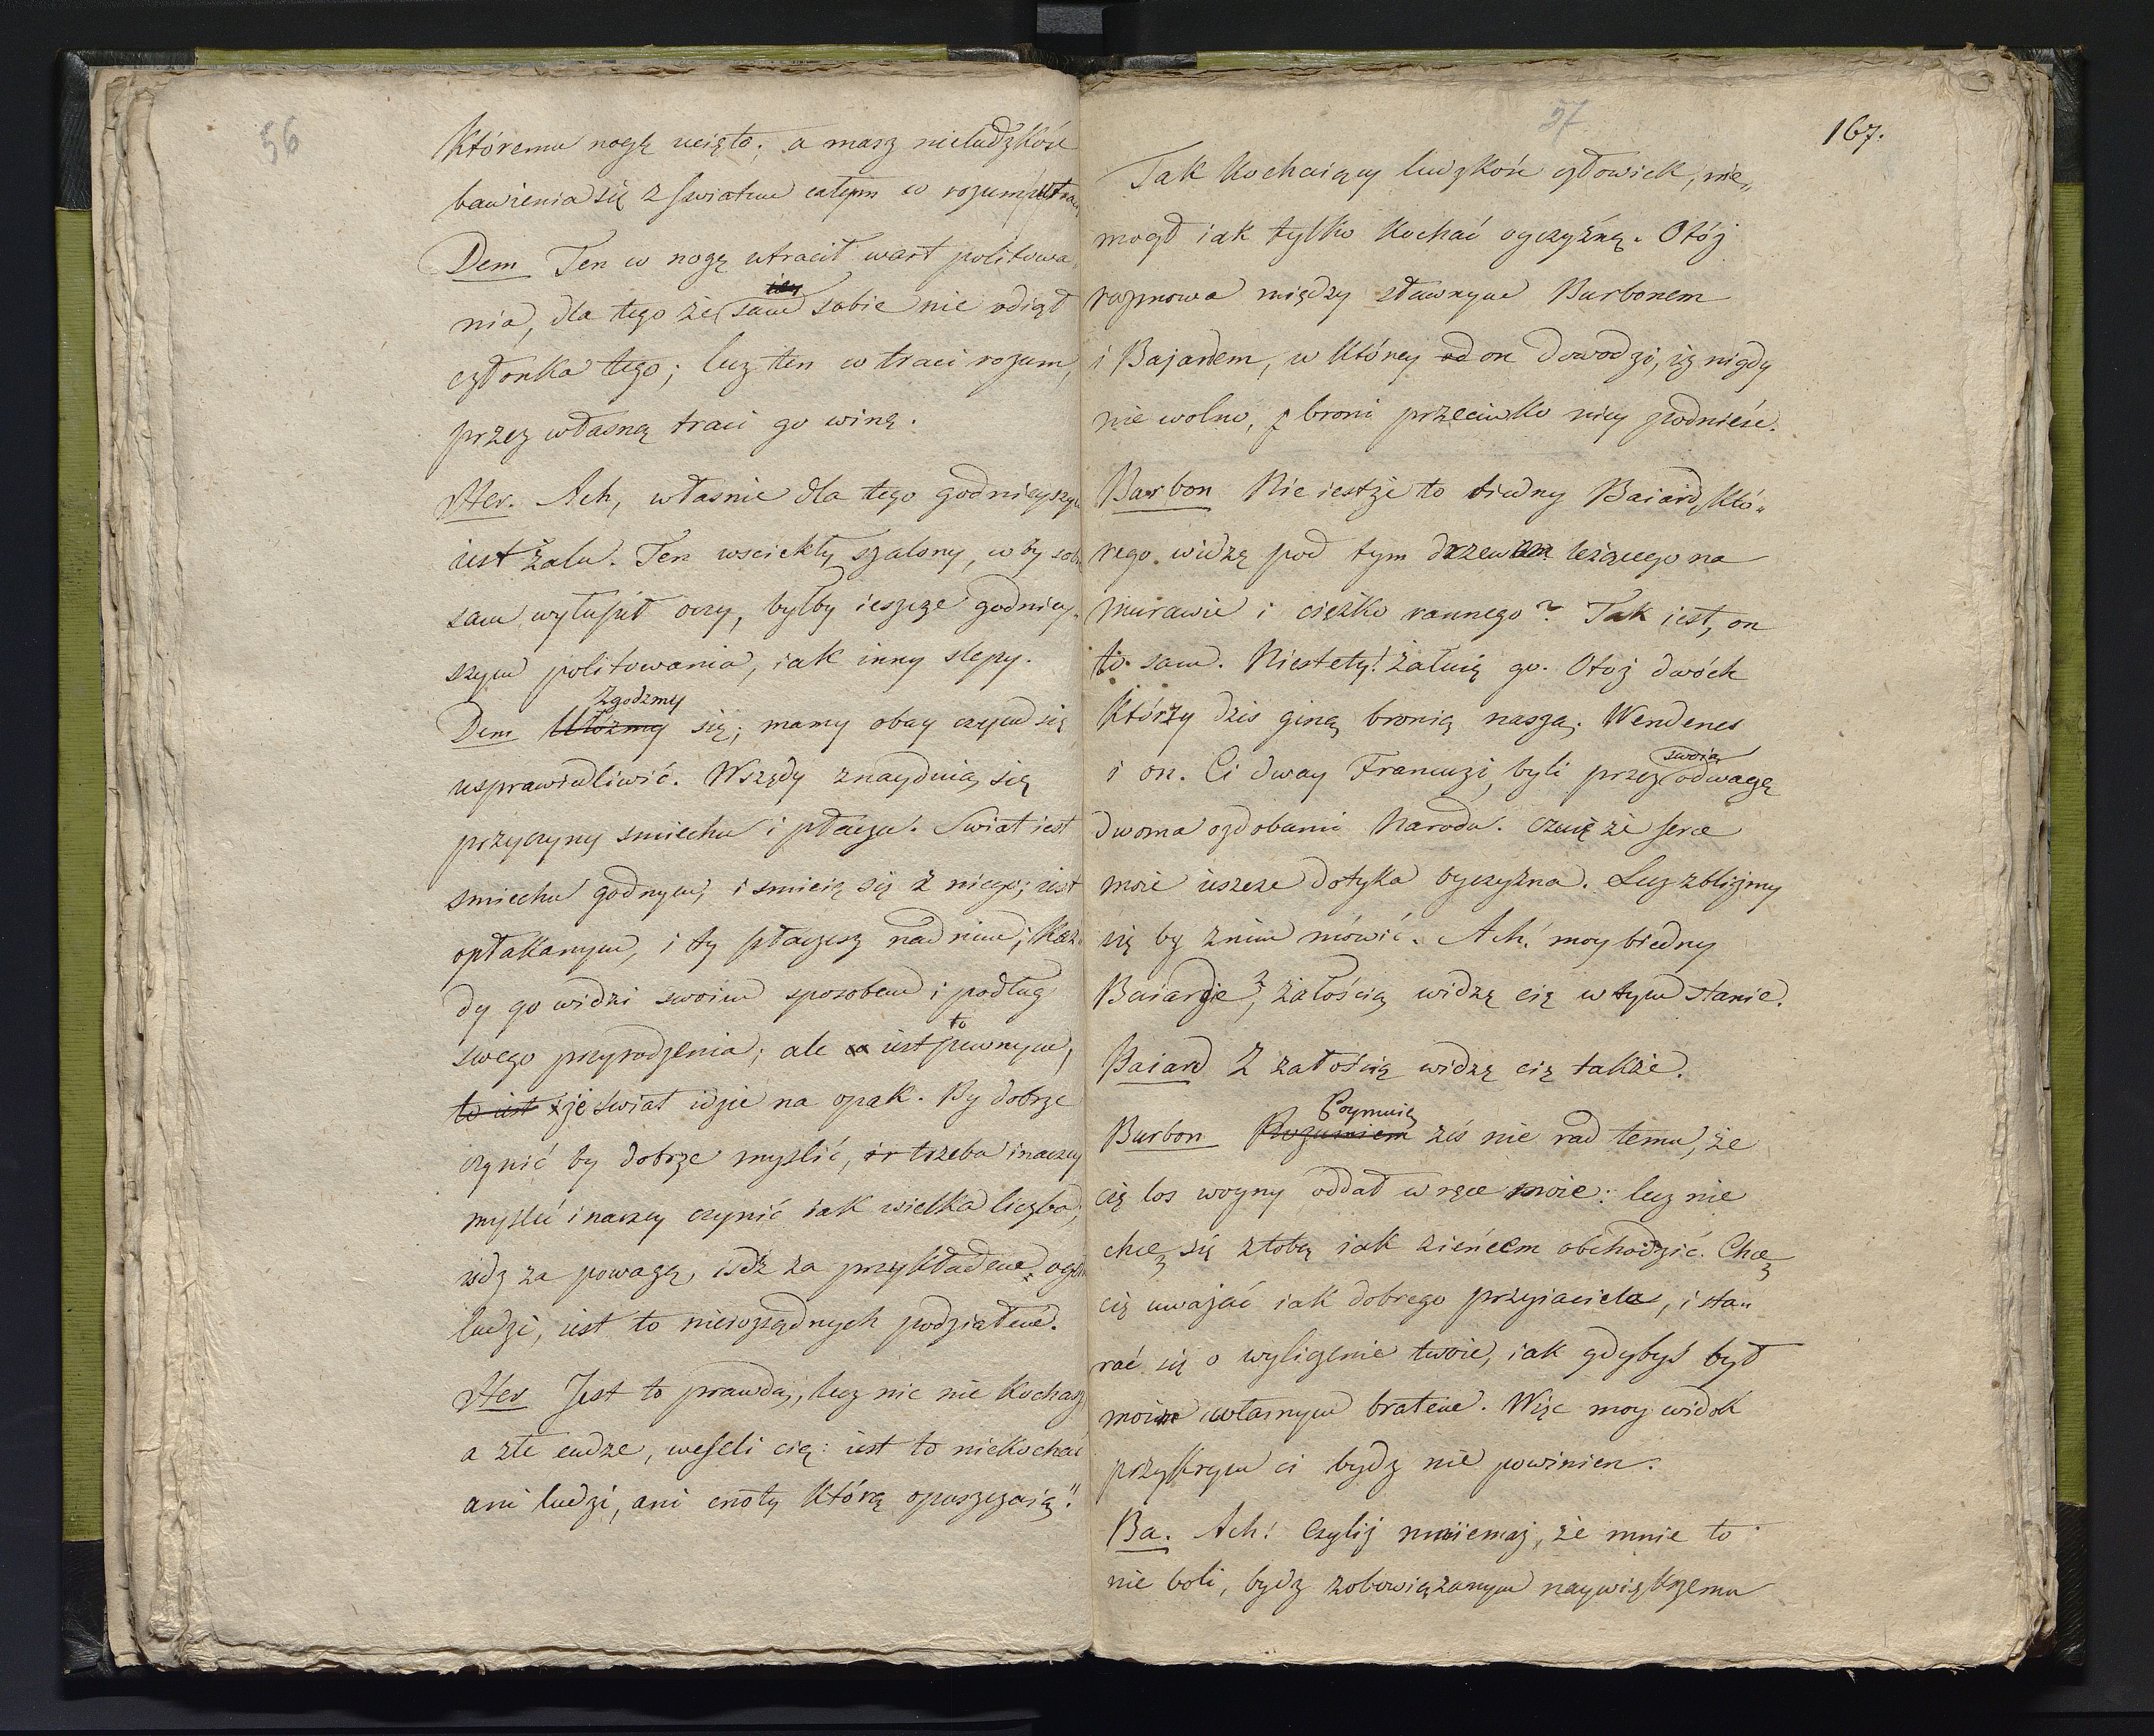 56
Któremu nogę ucięto; a masz nieludzkość
bawienia się z światem całym co rozum
Dem Ten co nogę utracił wart politowa
nia, dla tego że sam sobie nie odiął
członka tego; lecz ten co traci rozum,
przez własną traci go winę.
Her. Ach, własnie dla tego godnieyszym
iest żalu. Ten wsciekły szalony, coby sobie
sam wyłupił oczy, byłby ieszcze godniey-
szym politowania, iak inny slepy.
Zgodzmy
Dem Ułóżmy się; mamy obay czym się
usprawiedliwić. Wszędy znayduią się
przyczyny smiechu i płaczu. Swiat iest
smiechu godnym, i smieię się z niego; iest
opłakanym, i ty płaczesz nad nim; każ
dy go widzi swoim sposobem i podług
to
swego przyrodzenia; ale iest pewnym,
to iest że swiat idzie na opak. By dobrze
czynić by dobrze myslić, trzeba inaczey
myslić inaczey czynić iak wielka liczba;
isdz za powagą, isdź za przykładem
ludzi, iest to nierozsądnych podziałem.
Her Jest to prawdą, lecz nic nie kochasz
a złe cudze, weseli cię: iest to niekochać
ani ludzi, ani cnoty którą opuszczaią."
57
167.
Tak kochaiący ludzkość człowiek, nie„
mogł iak tylko kochać oyczyznę. Otóż
rozmowa między sławnym Burbonem
i Bajardem, w któney on dowodzi, iż nigdy
nie wolno, broni przeciwko niey podnieść.
Burbon Nie iestże to biedny Baiard, któ„
rego widzę pod tym drzewem leżącego na
murawie i cięzko rannego? Tak iest, on
to sam. Niestety! żałuię go. Otoż dwóch
Którzy dzis giną bronią naszą. Wendenes
swoią
i on. Ci dway Francuzi, byli przez odwagę
dwoma ozdobami Narodu. czuię że serce
moie ieszcze dotyka oyczyzna. Lecz zbliżmy
się by znim mówić. Ach! moy biedny
Baiardzie, z żałością widzę cię w tym stanie.
Baiard Z żałością widzę cię także.
Poymuię
Burbon Rozumiem żeś nie rad temu, że
cię los woyny oddał w ręce moie: lecz nie
chcę się ztobą iak zieńcem obchodzić. Chcę
cię uważać iak dobrego przyiaciela, i sta„
rać się o wyliczenie twoie, iak gdybyś był
moim własnym bratem. Więc moy widok
przykrym ci bydz nie powinien.
Ba. Ach! Czyliż mniemasz, że mnie to
nie boli, bydz zobowiązanym naywiększemu